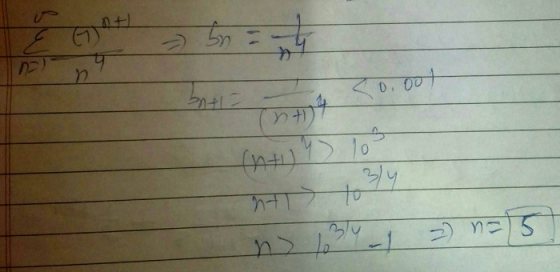 ∑_{n=1}^{∞} (-1)^{n+1}/n^4 ⇒ b_n = 1/n^4
b_{n+1} = 1/(n+1)^4 < 0.001
(n+1)^4 > 10^3
n+1 > 10^{3/4}
n > 10^{3/4} - 1 ⇒ n = 5